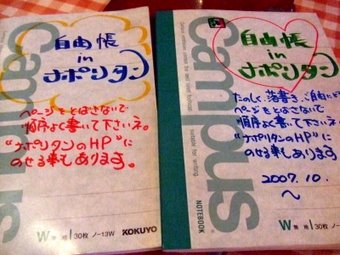 自由帳
in
ナポリタン
ページをとばさないで
順序よく書いて下さいネ。
"ナポリタンのHP"に
のせる事もあります。
Campus
30枚 ノ-13W KOKUYO
自由帳
in
ナポリタン
たのしく、落書き、ご自由にど
ページをとばさないで
順序よく書いて下さいネ。
"ナポリタンのHP"に
のせる事もあります
2007.10.
～
Campus
suitable for writing
NOTEBOOK
30枚